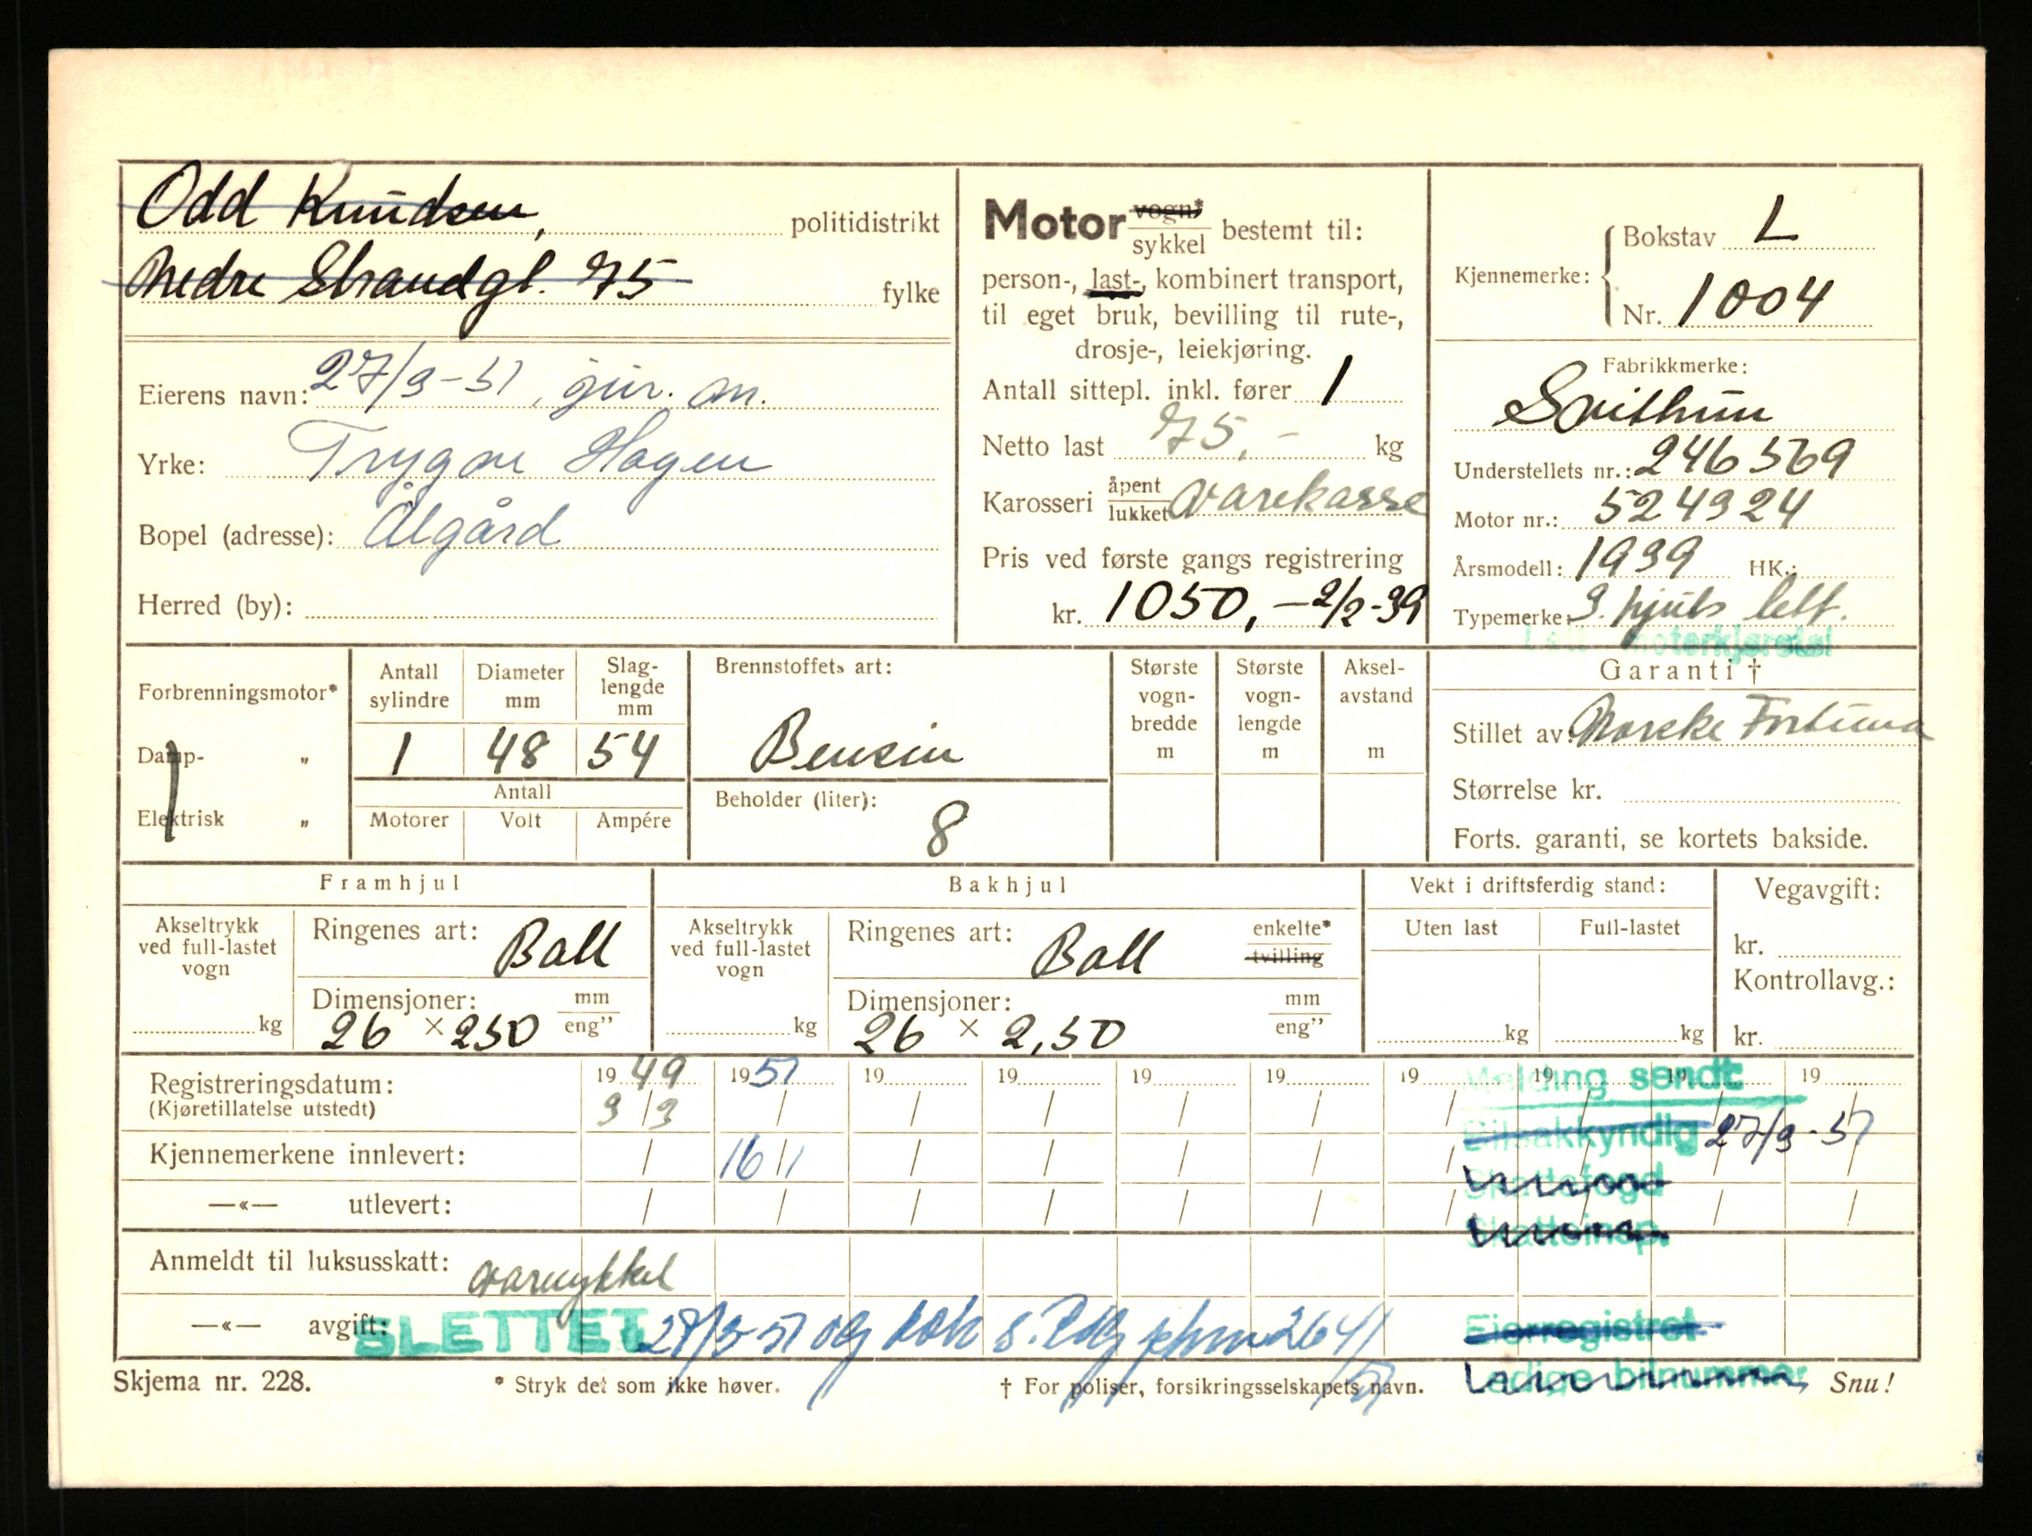 Odd Knudsen, politidistrikt
Nedre Strandgt. 75 fylke
Eierens navn: 27/3-51, gjir. an.
Yrke: Trygve Hagen
Bopel (adresse): Ålgård
Herred (by):
Motor vogn* sykkel bestemt til:
person-, last-, kombinert transport,
til eget bruk, bevilling til rute-,
drosje-, leiekjøring.
Antall sittepl. inkl. fører 1
Netto last 75,- kg
Karosseri åpent lukket varekasse
Pris ved første gangs registrering
kr. 1050,- 2/2-39
Kjennemerke: Bokstav L
Nr. 1004
Fabrikkmerke:
Svithun
Understellets nr.: 246569
Motor nr.: 524924
Årsmodell: 1939 HK.:
Typemerke: 3. hjuls lett.
Lett motorkjøretøi
Forbrenningsmotor*
Damp- „
Elektrisk „
Antall sylindre Diameter mm Slag-lengde mm
1 48 54
Antall
Motorer Volt Ampére
Brennstoffets art:
Bensin
Beholder (liter):
8
Største vogn-bredde m
Største vogn-lengde m
Aksel-avstand m
Garanti †
Stillet av: Norske Fortuna
Størrelse kr.
Forts. garanti, se kortets bakside.
Framhjul
Akseltrykk ved full-lastet vogn
kg
Ringenes art: Ball
Dimensjoner: mm eng”
26 × 250
Bakhjul
Akseltrykk ved full-lastet vogn
kg
Ringenes art: Ball enkelte* tvilling
Dimensjoner: mm eng”
26 × 2,50
Vekt i driftsferdig stand:
Uten last Full-lastet
kg kg
Vegavgift:
kr.
Kontrollavg.:
kr.
Registreringsdatum: 1949 1951 19 19 19 19 19 19 19 19
(Kjøretillatelse utstedt) 3/3 / / / / / / / / /
Kjennemerkene innlevert: / 16/1 / / / / / / / /
—«— utlevert: / / / / / / / / / /
Melding sendt
Bilsakkyndig 27/3-51
Skattefogd
Skatteinsp.
Anmeldt til luksusskatt: varesykkel
—«— avgift:
SLETTET 27/3-51 og
Eierregistret
Ledige bilnummer
Skjema nr. 228. * Stryk det som ikke høver. † For poliser, forsikringsselskapets navn. Snu!